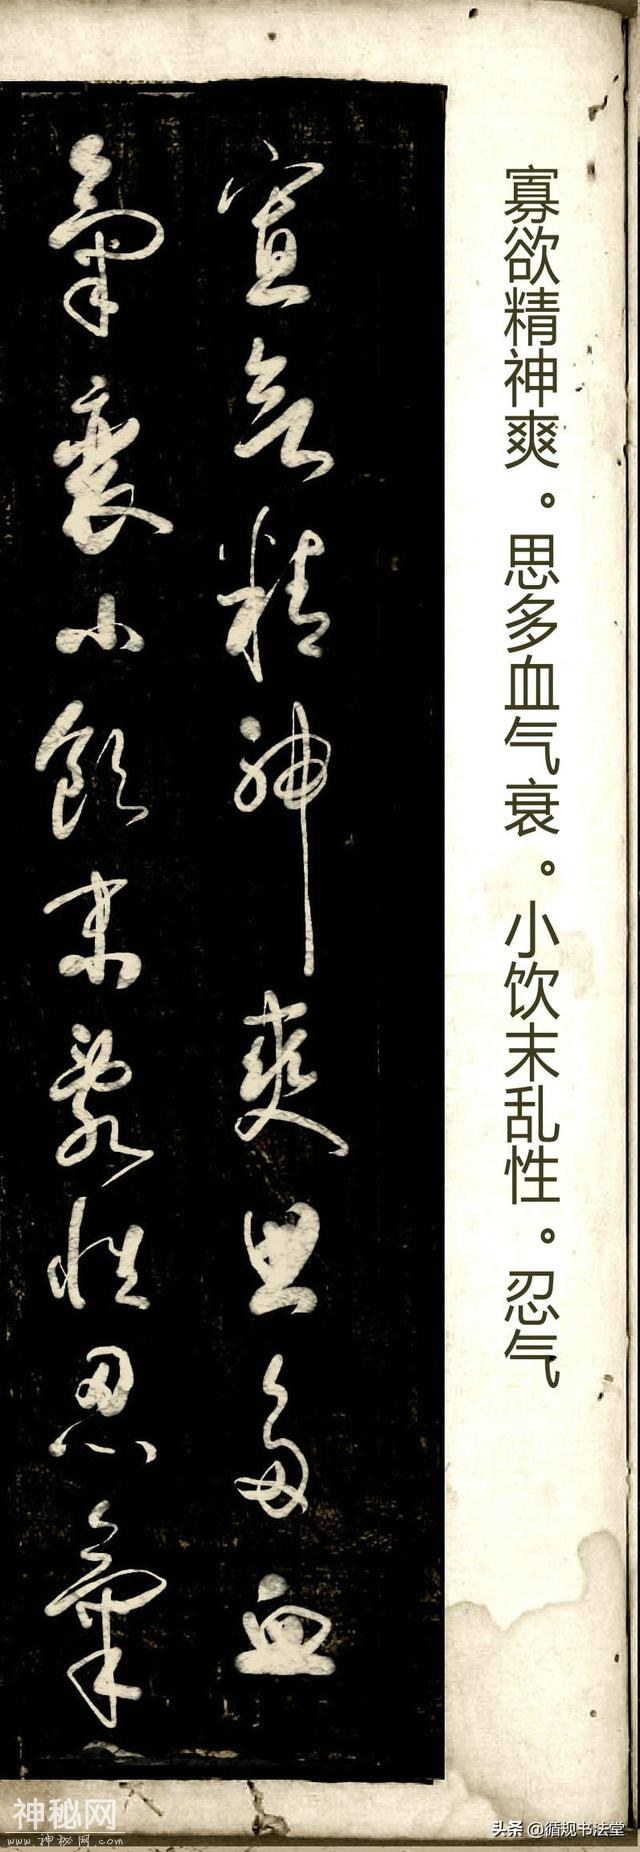 寡欲精神爽。思多血气衰。小饮末乱性。忍气
寡欲精神爽思多血
氣衰小飲末亂性忍氣
神秘网
www.神秘网.com
头条 @循规书法堂